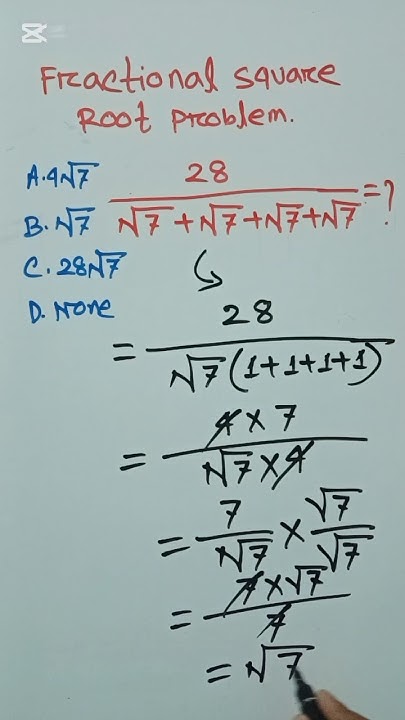 Fractional square
Root problem.
A. 4√7
B. √7
C. 28√7
D. None
28 / (√7 + √7 + √7 + √7) = ?
= 28 / (√7 (1+1+1+1))
= (4 × 7) / (√7 × 4)
= 7/√7 × √7/√7
= (7 × √7) / 7
= √7